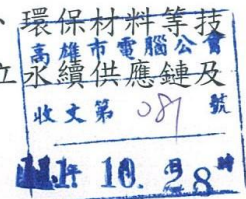 、環保材料等技
立永續供應鏈及
高雄市電腦公會
收文第 081 號
111年10.月28日